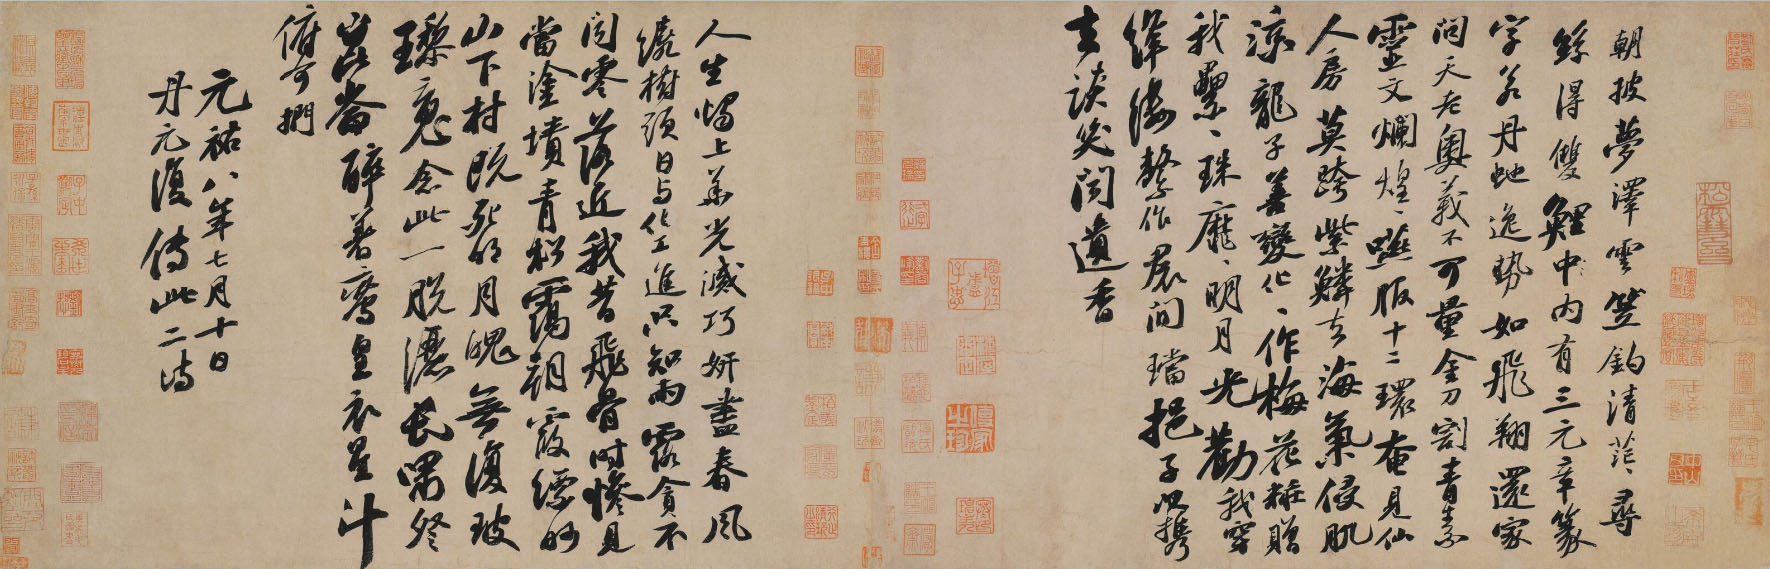 朝披夢澤雲笠釣清茫〻尋
絲得雙鯉中内有三元章篆
字若丹虵逸勢如飛翔還家
問天老奧義不可量金刀割青素
靈文爛煌〻嚥服十二環奄見仙
人房莫跨紫鱗去海氣侵肌
涼龍子善變化〻作梅花粧贈
我纍〻珠靡〻明月光勸我穿
絳縷繫作裙間璫挹子以攜
去談笑聞遺香
人生燭上華光滅巧妍盡春風
繞樹頭日與化工進只知雨露貪不
聞零落近我昔飛骨時慘見
當塗墳青松靄朝霞縹眇
山下村既死明月魄無復玻
瓈魂念此一脫灑長嘯祭
崑崙醉著鸞皇衣星斗
俯可捫
元祐八年七月十日
丹元復傳此二詩